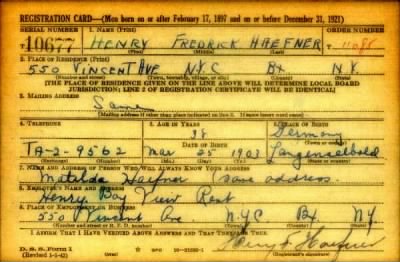 REGISTRATION CARD—(Men born on or after February 17, 1897 and on or before December 31, 1921)
SERIAL NUMBER 1. NAME (Print) ORDER NUMBER
T 10677 HENRY FREDRICK HAEFNER T 11088
(First) (Middle) (Last)
2. PLACE OF RESIDENCE (Print)
550 VINCENT AVE N.Y.C Bx N.Y.
(Number and street) (Town, township, village, or city) (County) (State)
[THE PLACE OF RESIDENCE GIVEN ON THE LINE ABOVE WILL DETERMINE LOCAL BOARD
JURISDICTION; LINE 2 OF REGISTRATION CERTIFICATE WILL BE IDENTICAL]
3. MAILING ADDRESS
Same
[Mailing address if other than place indicated on line 2. If same insert word same]
4. TELEPHONE 5. AGE IN YEARS 6. PLACE OF BIRTH
38 Germany
DATE OF BIRTH
TA-2-9562 Mar 25 1903 Langenselbold
(Exchange) (Number) (Mo.) (Day) (Yr.) (State or country)
7. NAME AND ADDRESS OF PERSON WHO WILL ALWAYS KNOW YOUR ADDRESS
Matilda Haefner Same address.
8. EMPLOYER'S NAME AND ADDRESS
Henry Bay View Rest
9. PLACE OF EMPLOYMENT OR BUSINESS
550 Vincent Ave. N.Y.C Bx. NY
(Number and street or R. F. D. number) (Town) (County) (State)
I AFFIRM THAT I HAVE VERIFIED ABOVE ANSWERS AND THAT THEY ARE TRUE.
D. S. S. Form 1
(Revised 1-1-42) GPO 16—21630-1 Henry F Haefner
(Registrant's signature)